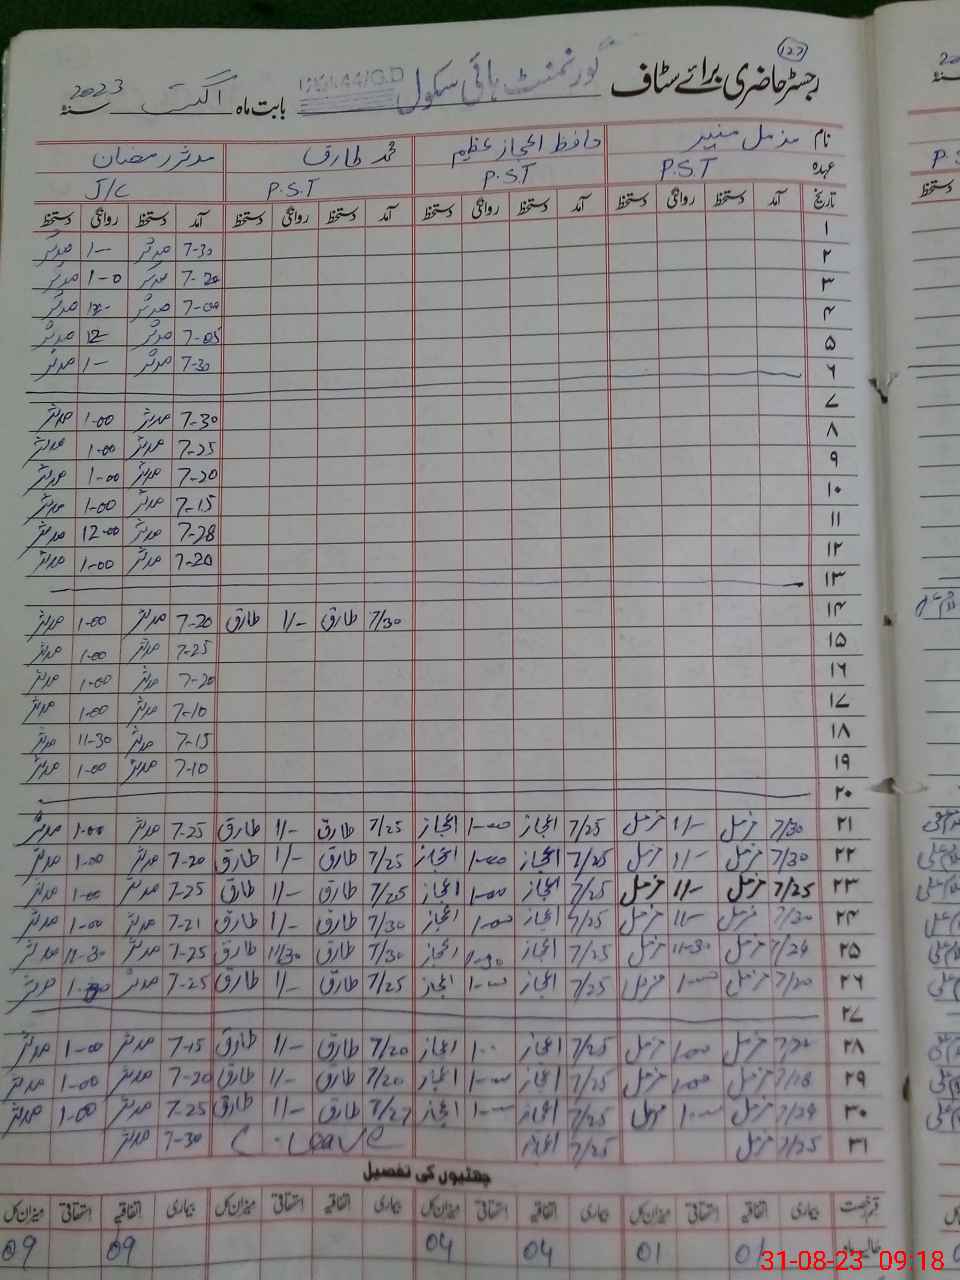 (122)
رجسٹر حاضری برائے سٹاف گورنمنٹ ہائی سکول بابت ماہ اگست 2023 سنہ
نام مزمل منیر حافظ اعجاز عظیم محمد طارق مدثر رمضان
عہدہ P.S.T P.S.T P.S.T J/C
تاریخ آمد دستخط روانگی دستخط آمد دستخط روانگی دستخط آمد دستخط روانگی دستخط آمد دستخط روانگی دستخط
۱
۲ 7-30 مدثر 1- مدثر
۳ 7-20 مدثر 1-0 مدثر
۴ 7-00 مدثر 12- مدثر
۵ 7-05 مدثر 12- مدثر
۶ 7-30 مدثر 1- مدثر
۷
۸ 7-30 مدثر 1-00 مدثر
۹ 7-25 مدثر 1-00 مدثر
۱۰ 7-20 مدثر 1-00 مدثر
۱۱ 7-15 مدثر 1-00 مدثر
۱۲ 7-28 مدثر 12-00 مدثر
7-20 مدثر 1-00 مدثر
۱۳
۱۴ 7/30 طارق 1/- طارق 7-20 مدثر 1-00 مدثر
۱۵ 7-25 مدثر 1-00 مدثر
۱۶ 7-20 مدثر 1-00 مدثر
۱۷ 7-10 مدثر 1-00 مدثر
۱۸ 7-15 مدثر 11-30 مدثر
۱۹ 7-10 مدثر 1-00 مدثر
۲۰
۲۱ 7/30 مزمل 1/- مزمل 7/25 اعجاز 1-00 اعجاز 7/25 طارق 1/- طارق 7-25 مدثر 1-00 مدثر
۲۲ 7/30 مزمل 1/- مزمل 7/25 اعجاز 1-00 اعجاز 7/25 طارق 1/- طارق 7-20 مدثر 1-00 مدثر
۲۳ 7/25 مزمل 1/- مزمل 7/25 اعجاز 1-00 اعجاز 7/25 طارق 1/- طارق 7-25 مدثر 1-00 مدثر
۲۴ 7/30 مزمل 1/- مزمل 7/25 اعجاز 1-00 اعجاز 7/30 طارق 1/- طارق 7-21 مدثر 1-00 مدثر
۲۵ 7/24 مزمل 11-30 مزمل 7/25 اعجاز 1-30 اعجاز 7/30 طارق 11/30 طارق 7-25 مدثر 11-30 مدثر
۲۶ 7/20 مزمل 1-00 مزمل 7/25 اعجاز 1-00 اعجاز 7/25 طارق 1/- طارق 7-25 مدثر مدثر
۲۷
۲۸ مزمل 1-00 مزمل 7/25 اعجاز 1-00 اعجاز 7/20 طارق 1/- طارق 7-15 مدثر 1-00 مدثر
۲۹ 7/28 مزمل 1-00 مزمل 7/25 اعجاز 1-00 اعجاز 7/20 طارق 1/- طارق 7-20 مدثر 1-00 مدثر
۳۰ 7/24 مزمل 1-00 مزمل 7/25 اعجاز 1-00 اعجاز 7/27 طارق 1/- طارق 7-25 مدثر 1-00 مدثر
۳۱ 7/25 مزمل 7/25 اعجاز C. Leave 7-30 مدثر
چھٹیوں کی تفصیل
قسم رخصت بیماری اتفاقیہ استحقاقی میزان کل بیماری اتفاقیہ استحقاقی میزان کل بیماری اتفاقیہ استحقاقی میزان کل بیماری اتفاقیہ استحقاقی میزان کل
01 01 04 04 09 09
31-08-23 09:18